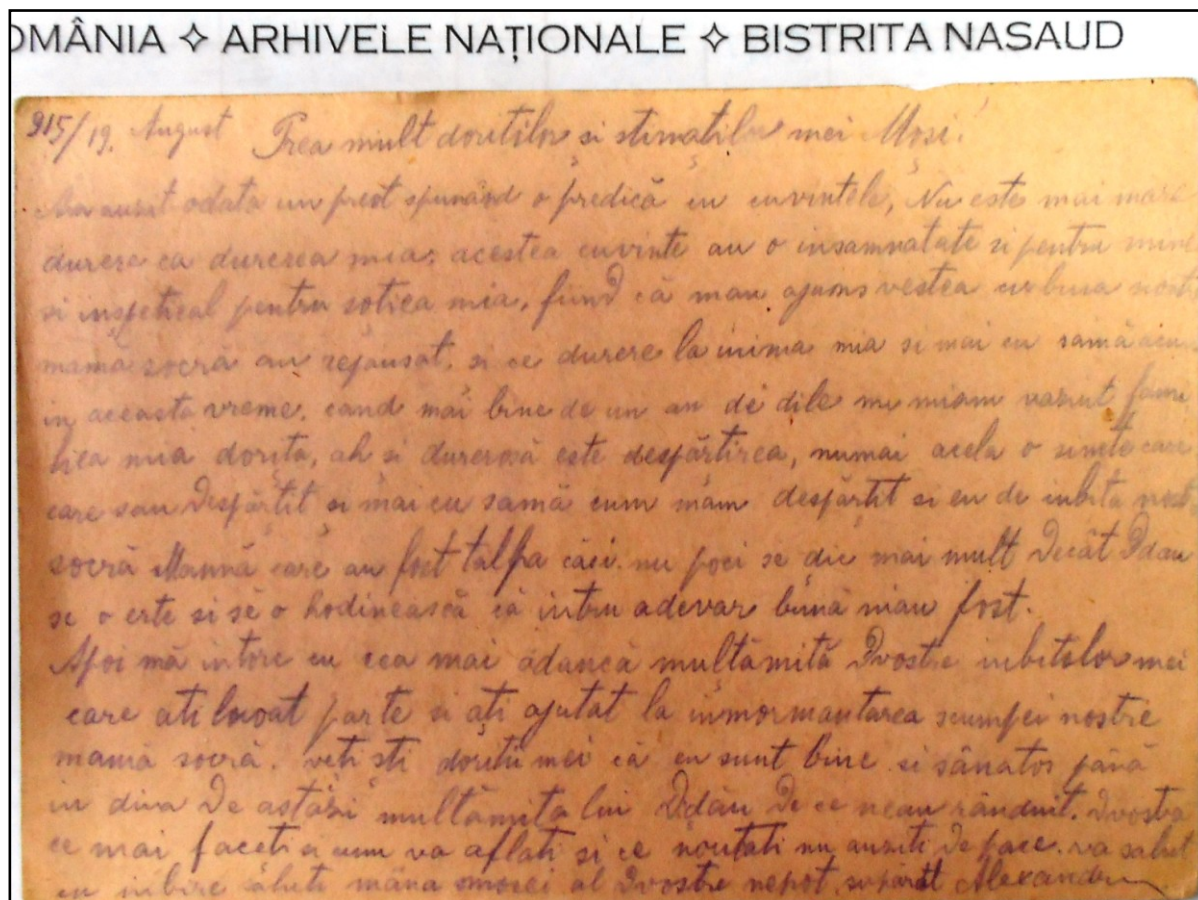 OMÂNIA ✧ ARHIVELE NAȚIONALE ✧ BISTRITA NASAUD
915/19. August Prea mult doritilor si stimatilor mei Mosi!
Am auzit odata un preot spunând o predică cu cuvintele, Nu este mai mare
durere ca durerea mia; acestea cuvinte au o insamnatate si pentru mine
si inspetical pentru sotiea mia, fiind că mau ajuns vestea cu buna nostr
mamă socră au repausat, si ce durere la inima mia si mai cu samă acu
in aceasta vreme. cand mai bine de un an de dile nu miam vazut fami
liea mia dorita, ah si durerosă este despărtirea, numai acela o simte care
care sau despărtit si mai cu samă cum mam despărtit si eu de iubita nost
socră Mamă care au fost talpa căsi. nu poci se dic mai mult decât Ddău
se o erte si se o hodinească că intru adevar bună miau fost.
Apoi mă intorc cu cea mai adancă multămită Dvostre iubitilor mei
care ati luoat parte si ati ajutat la inmormantarea scumpei nostre
mamă socră. veti sti doritii mei că eu sunt bine si sănatos până
in diua de astăzi multămita lui Ddău de ce neau rânduit. Dvostra
ce mai faceti si cum va aflati si ce noutati nu auziti de pace. va salut
cu iubire sălut mâna al Dvostre nepot supărat Alexandru